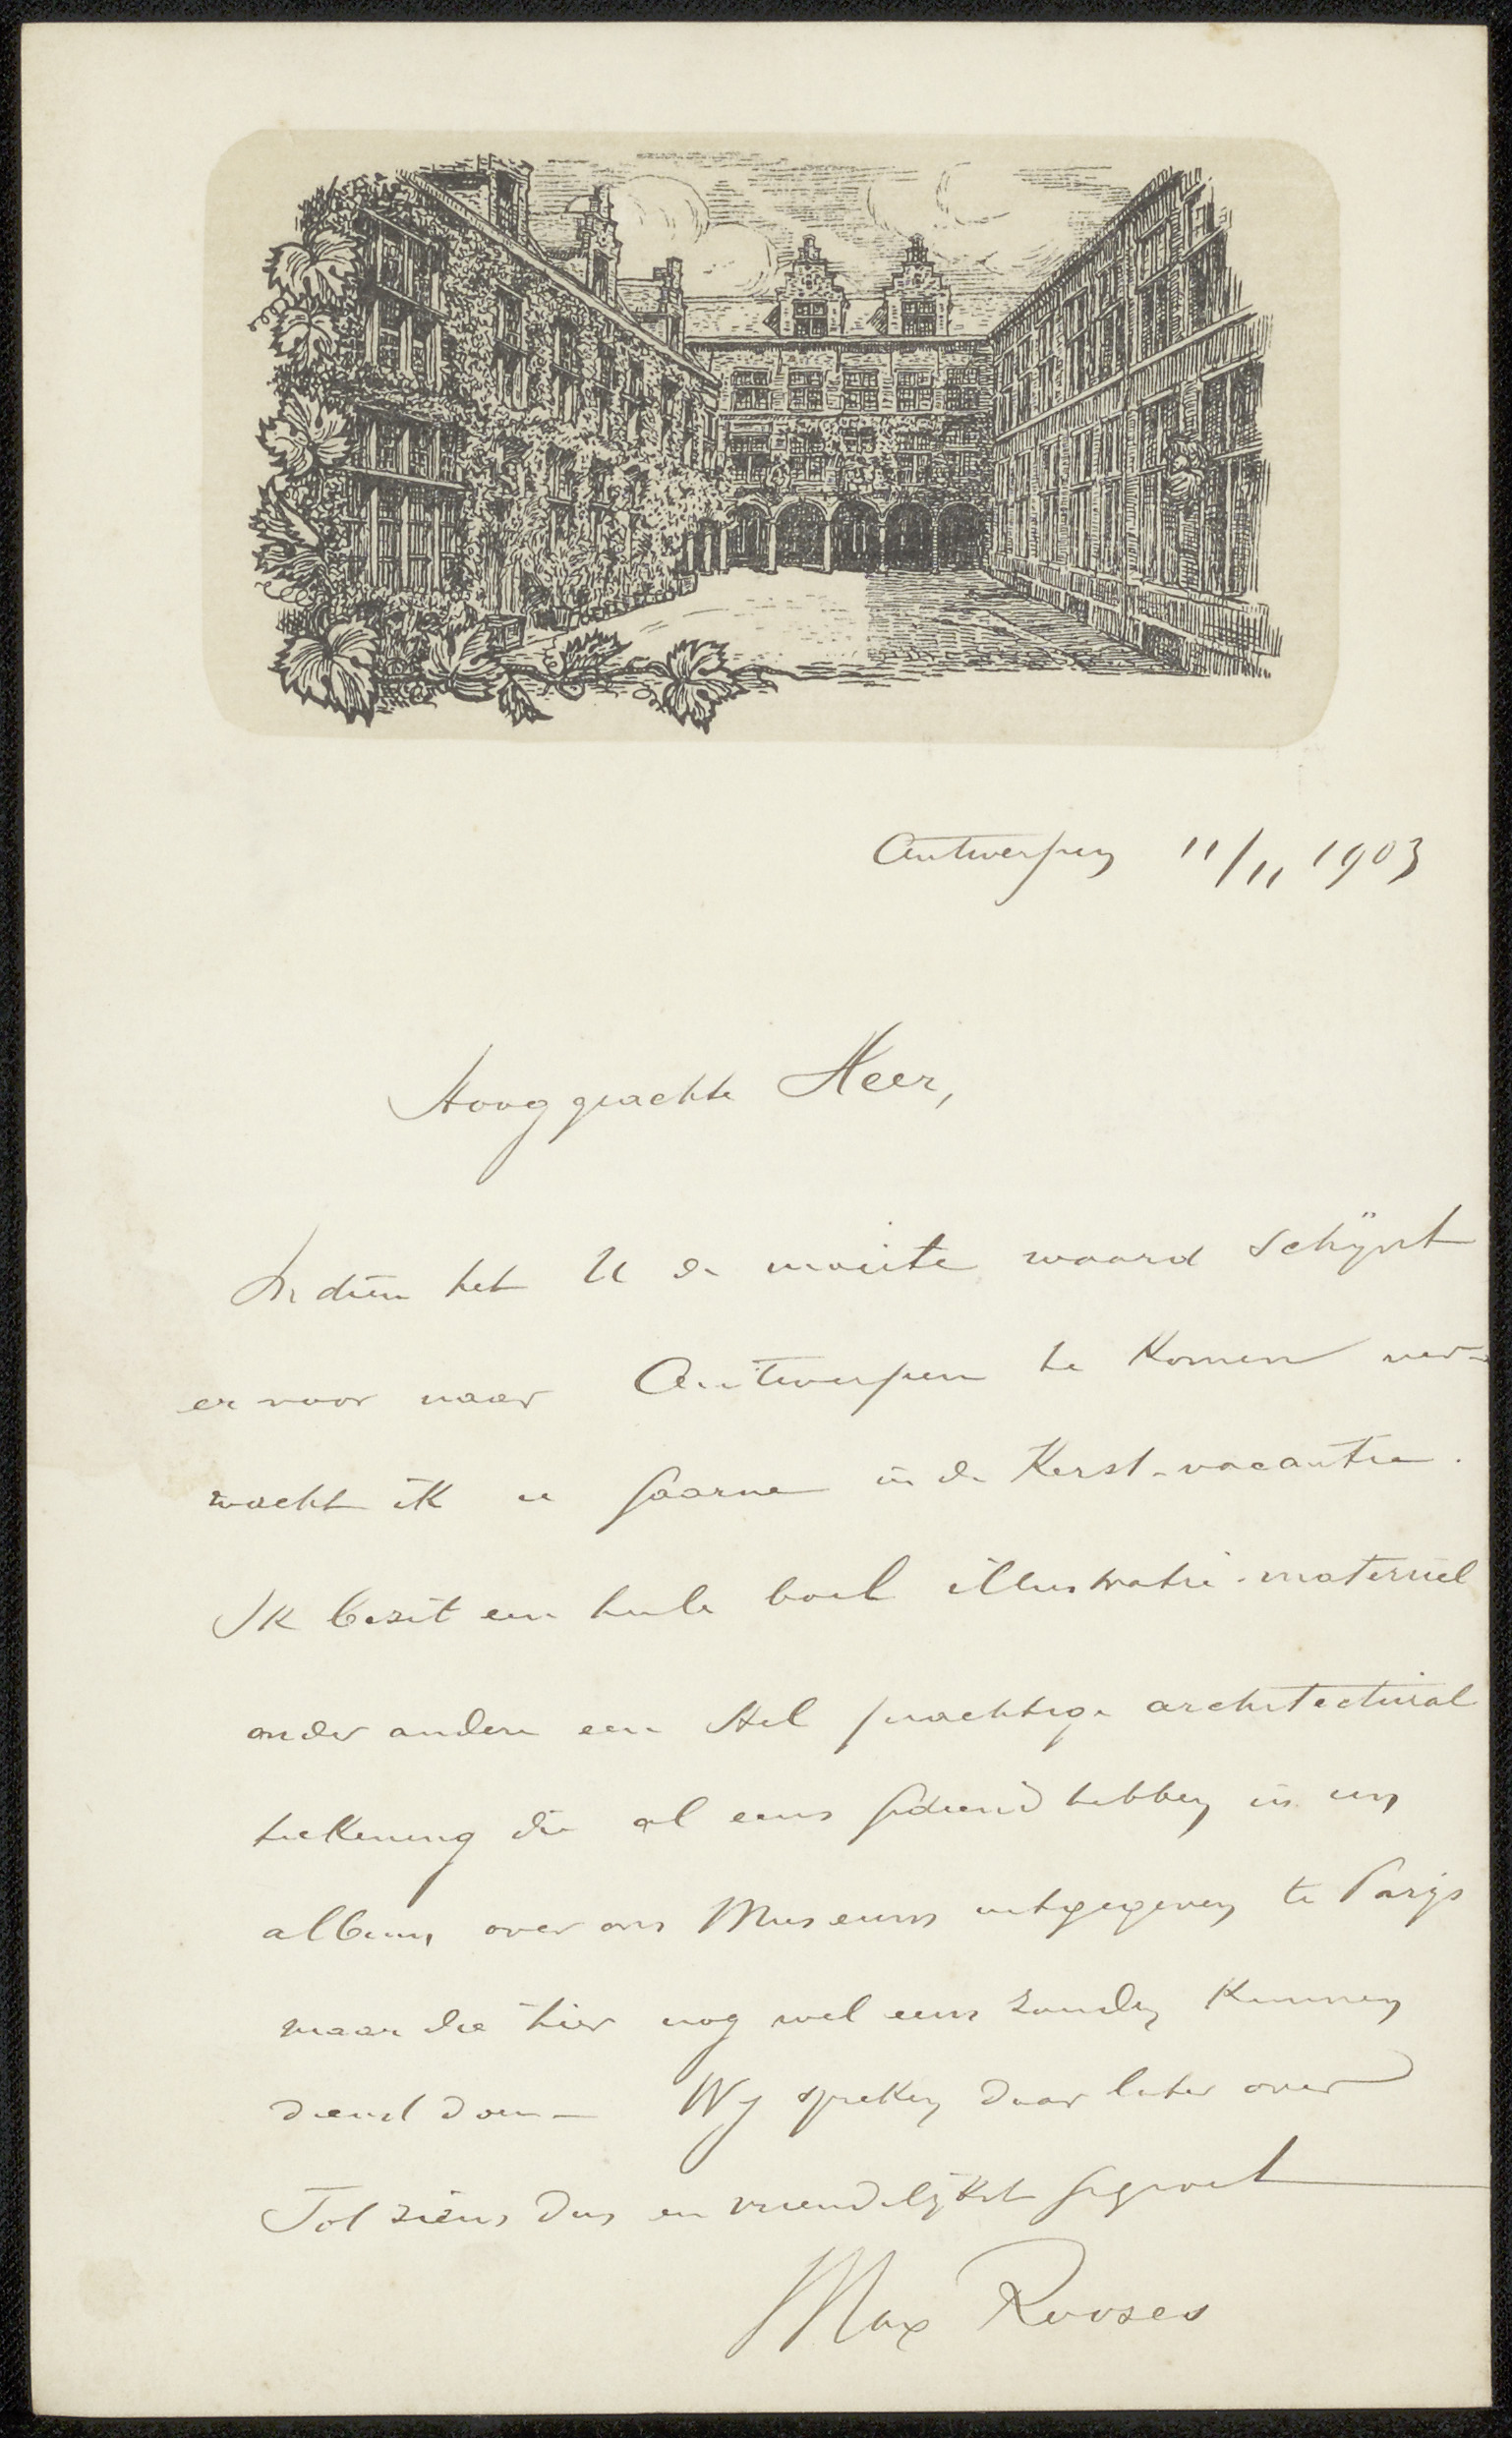 Antwerpen 11/11 1903
Hooggeachte Heer,
Indien het U de moeite waard schijnt
er voor naar Antwerpen te komen ver-
wacht ik u gaarne in de Kerst-vacantie.
Ik bezit een heele boel illustratie-materieel
onder andere een stel prachtige architecturial
teekening die al eens gediend hebben in een
album over ons Museum uitgegeven te Parijs
maar die hier nog wel eens zouden kunnen
dienst doen — Wij spreken daar later over
Tot ziens dus en vriendelijkst gegroet
Max Rooses